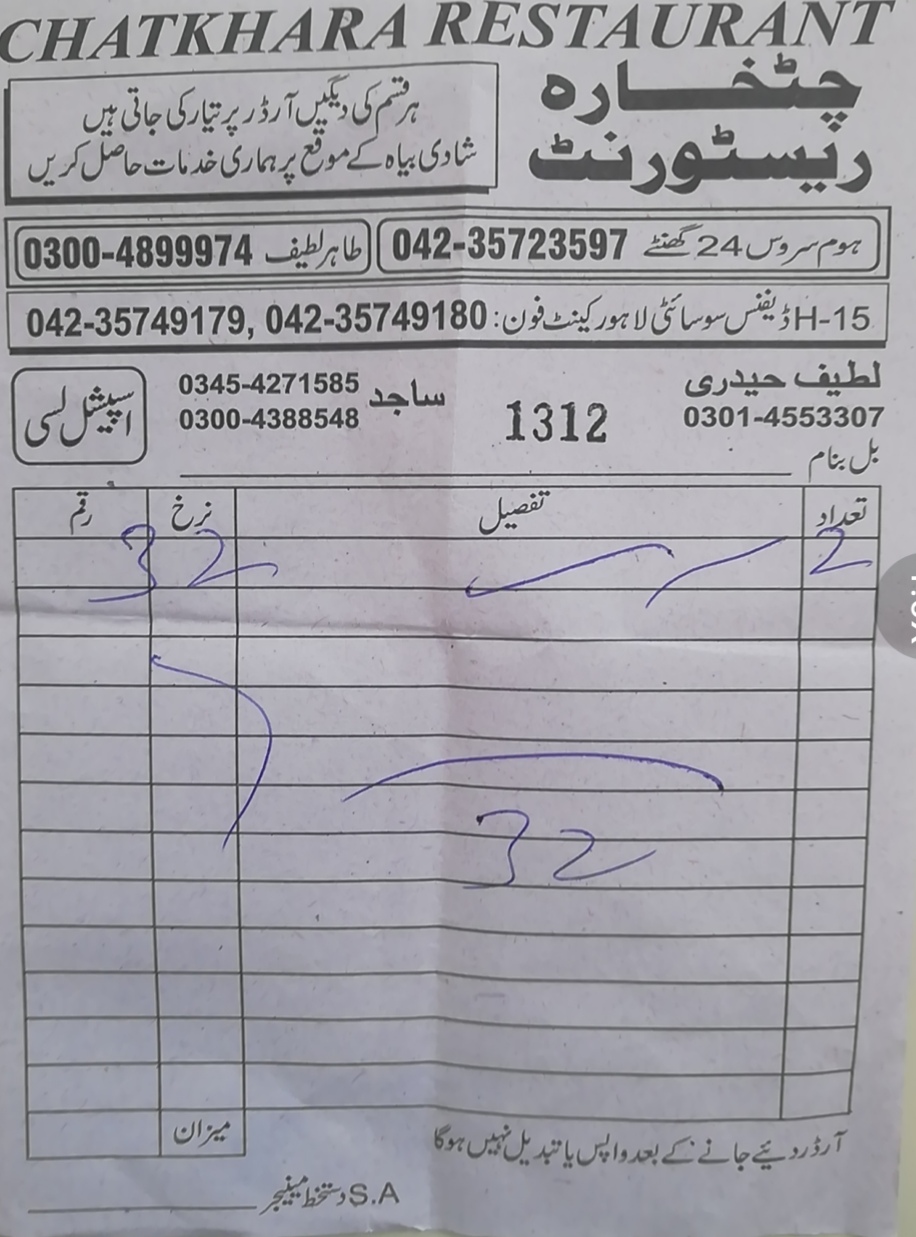 CHATKHARA RESTAURANT
چٹخارہ
ریسٹورنٹ
ہر قسم کی دیگیں آرڈر پر تیار کی جاتی ہیں
شادی بیاہ کے موقع پر ہماری خدمات حاصل کریں
ہوم سروس 24 گھنٹے 042-35723597
طاہر لطیف 0300-4899974
H-15 ڈیفنس سوسائٹی لاہور کینٹ فون: 042-35749179, 042-35749180
لطیف حیدری
0301-4553307
1312
ساجد 0345-4271585
0300-4388548
اسپیشل لسی
بل بنام
تعداد تفصیل نرخ رقم
2 32
32
میزان
آرڈر دیئے جانے کے بعد واپس یا تبدیل نہیں ہوگا
S.A دستخط مینیجر